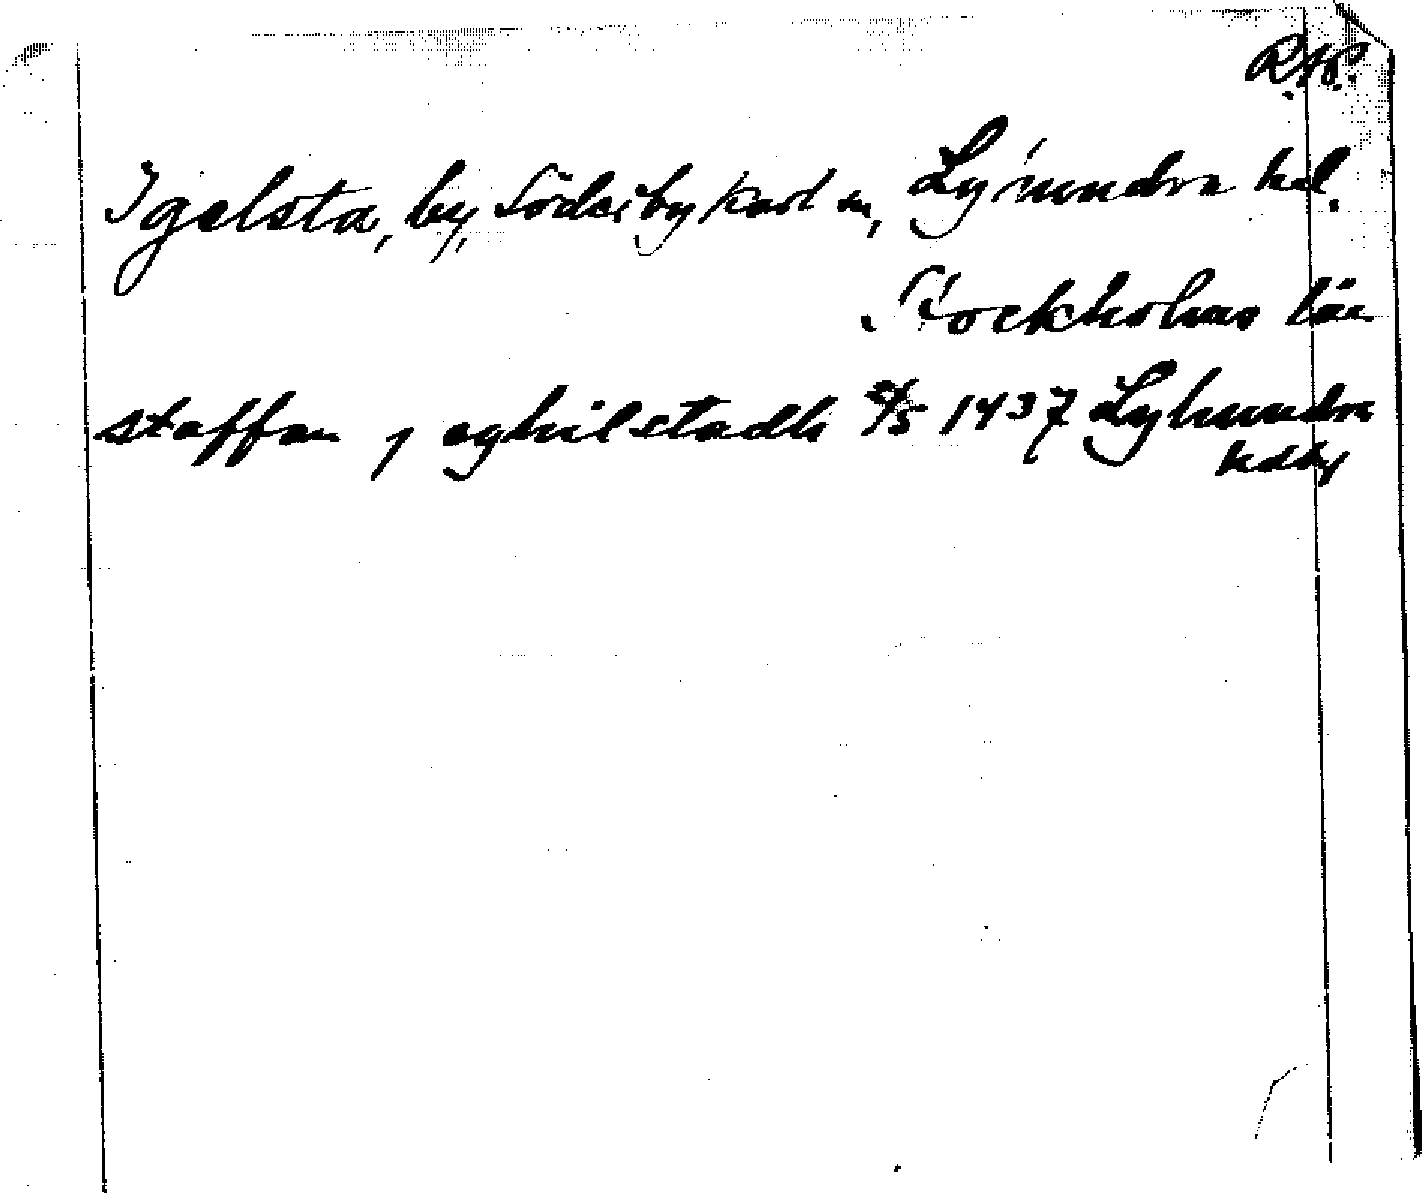 R.AP.
Igelsta, by, Söderbykarl sn, Lyhundra hd.
Stockholms län
staffan j eghilstadh /5 1437 Lyhundra
hdby